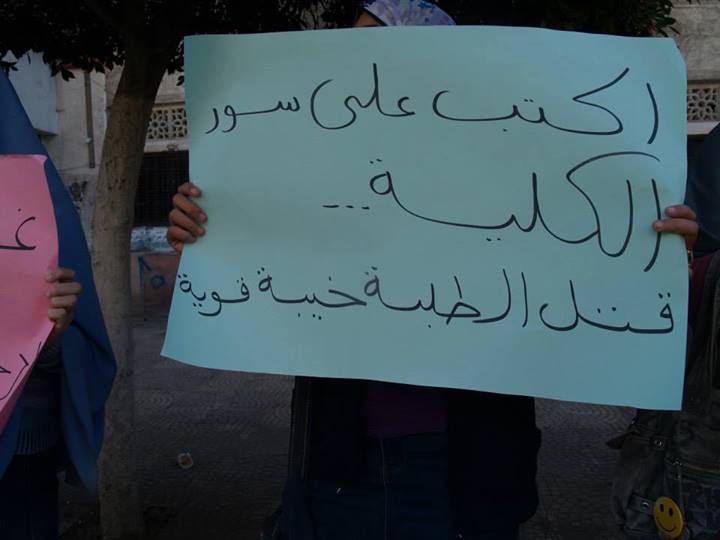 اكتب على سور
الكلية ...
قتل الطلبة خيبة قوية